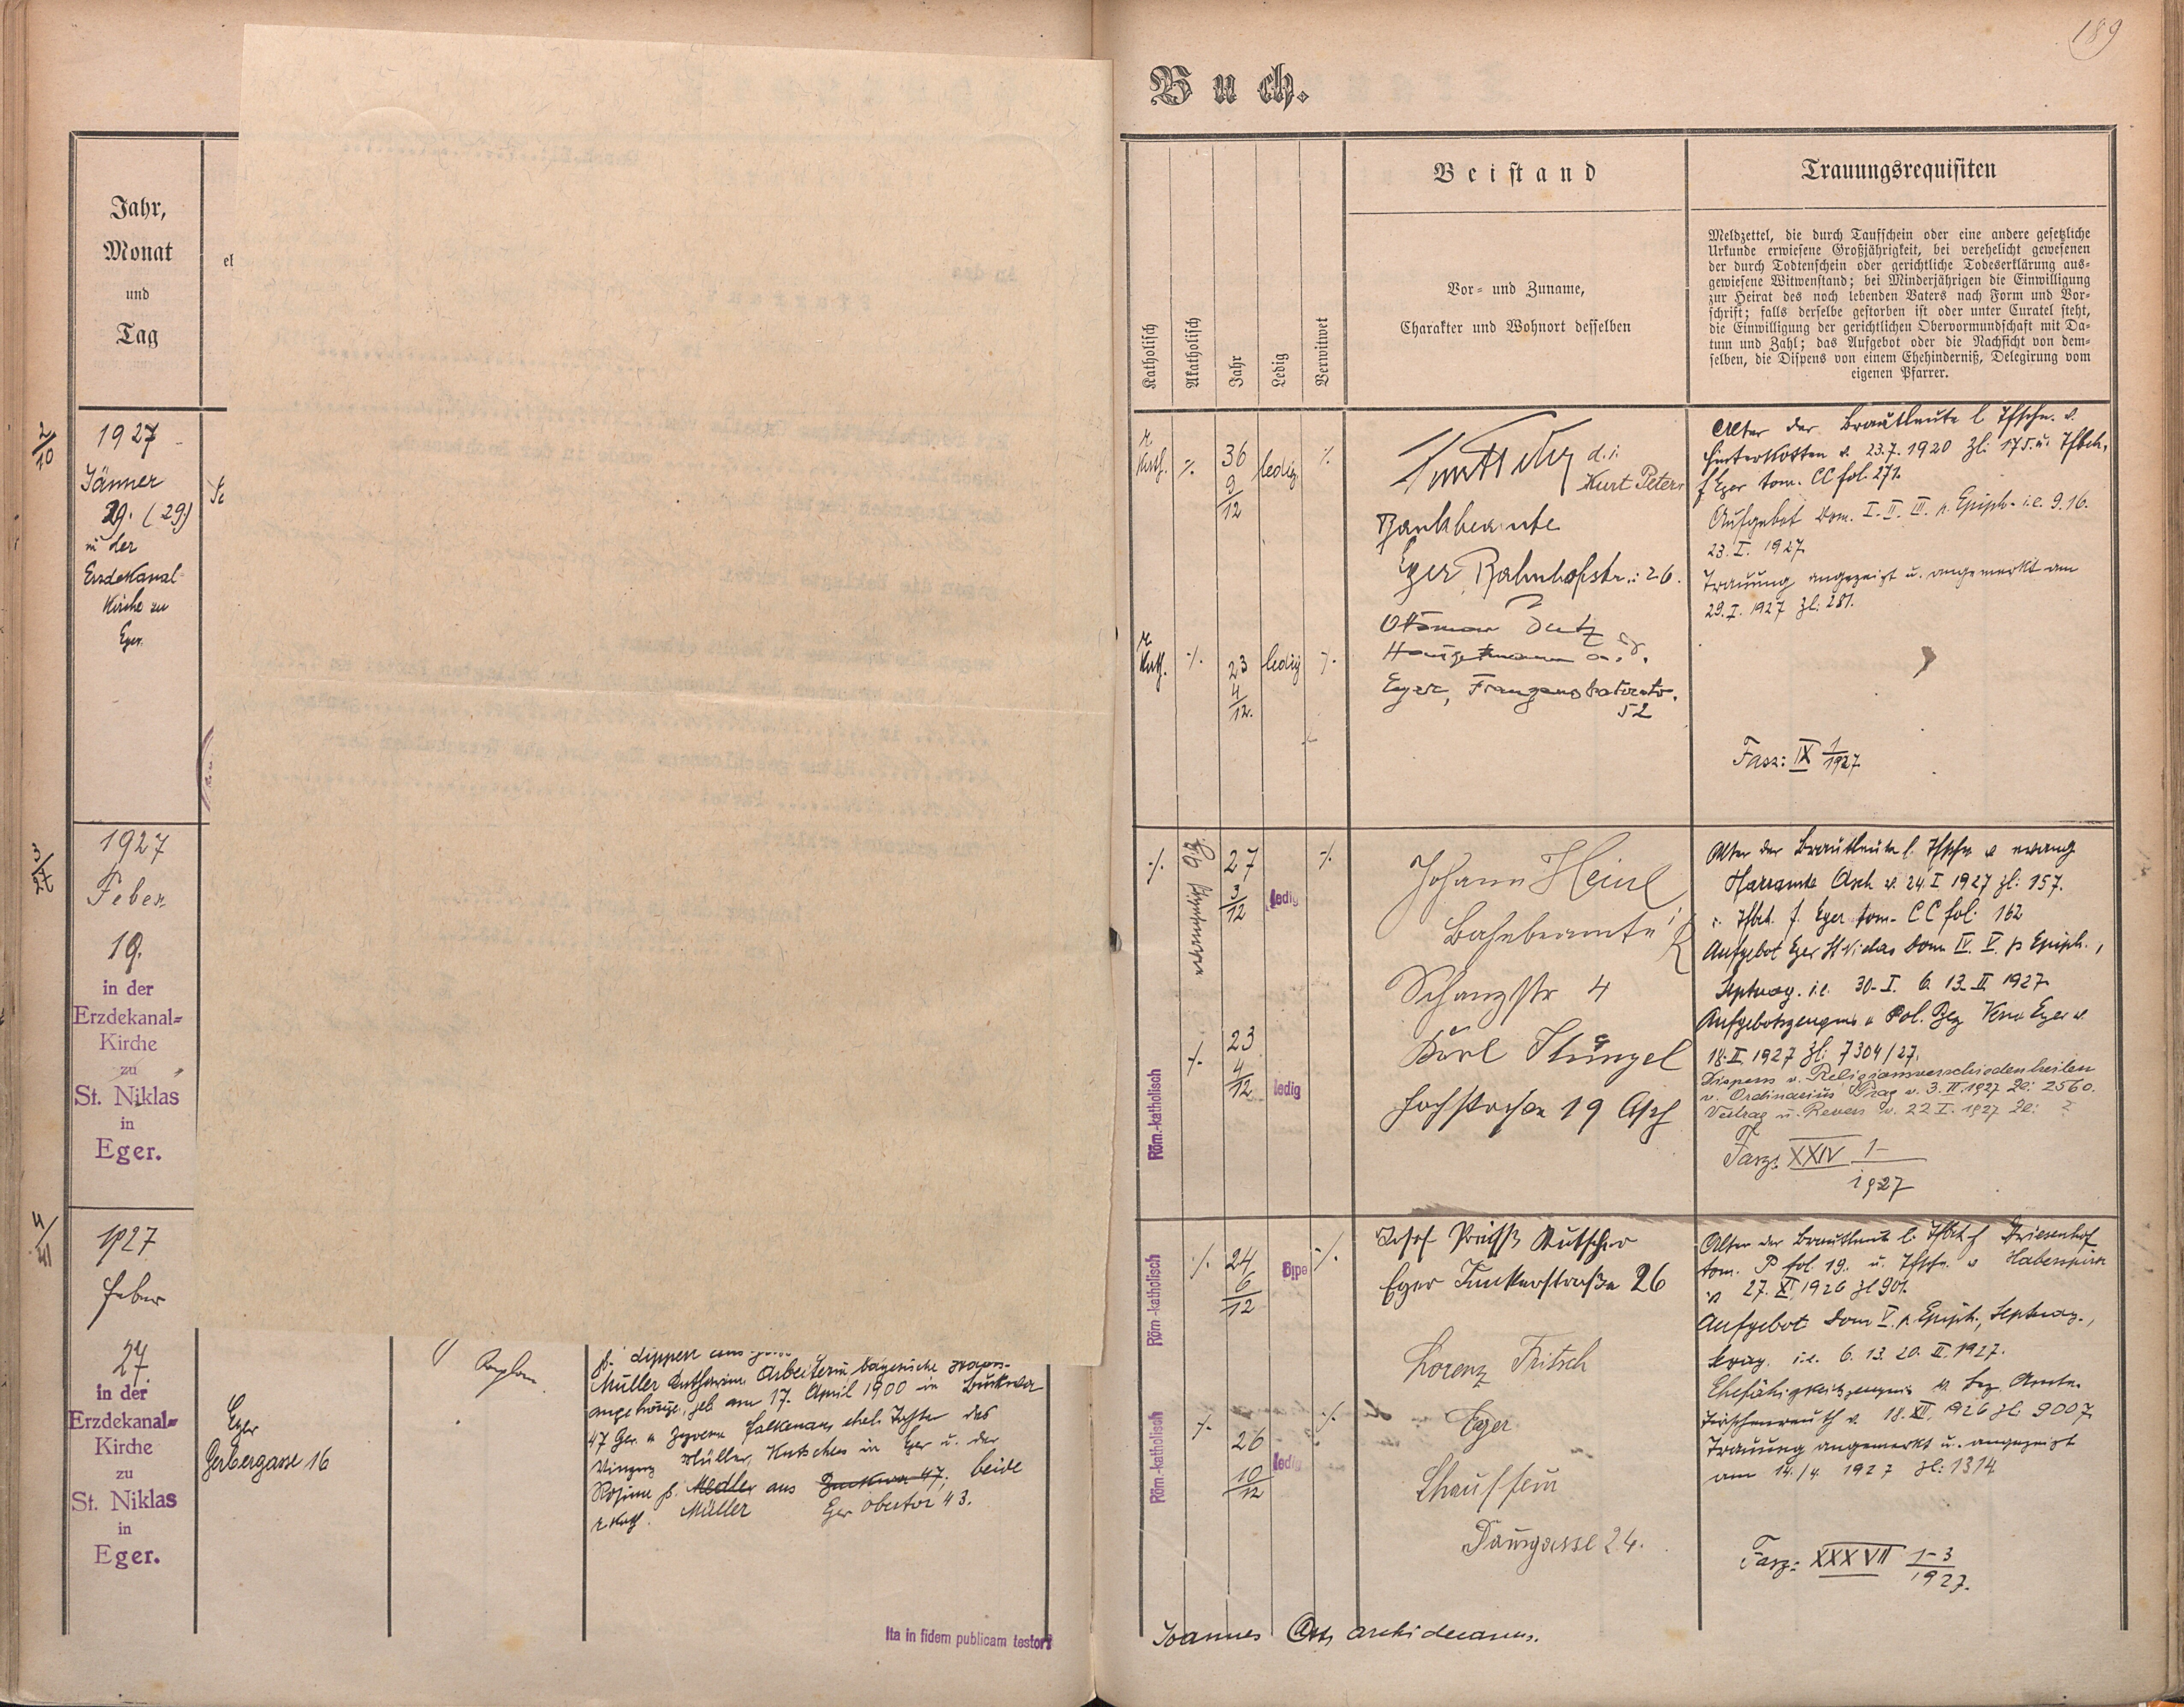 189
Buch.
Jahr,
Monat
und
Tag
el
2/10
1927
Jänner
29. (29)
in der
Erzdekanal-
Kirche zu
Eger.
3/27
1927
Feber
19.
in der
Erzdekanal=
Kirche
zu
St. Niklas
in
Eger.
4/41
1927
Feber
27.
in der
Erzdekanal=
Kirche
zu
St. Niklas
in
Eger.
Eger
Gerbergasse 16
Müller Katharina Arbeiterin, bayerische
angehörige, geb am 17. April 1900 in
47 Ger. Falkenau, ehel. Tochter des
Vinzenz Müller, Kutschers in Eger u. der
Rosina g. Medler aus Buckwa 47, beide
r. kath. Müller Eger Obertor 43.
Ita in fidem publicam testor:
Katholisch
Akatholisch
Jahr
Ledig
Verwitwet
Beistand
Vor= und Zuname,
Charakter und Wohnort desselben
Trauungsrequisiten
Meldzettel, die durch Taufschein oder eine andere gesetzliche
Urkunde erwiesene Großjährigkeit, bei verehelicht gewesenen
der durch Todtenschein oder gerichtliche Todeserklärung aus=
gewiesene Witwenstand; bei Minderjährigen die Einwilligung
zur Heirat des noch lebenden Vaters nach Form und Vor=
schrift; falls derselbe gestorben ist oder unter Curatel steht,
die Einwilligung der gerichtlichen Obervormundschaft mit Da=
tum und Zahl; das Aufgebot oder die Nachsicht von dem=
selben, die Dispens von einem Ehehinderniß, Delegirung vom
eigenen Pfarrer.
r. kath. % 36 9/12 ledig %
d. i.
Kurt Peters
Bankbeamte
Eger, Bahnhofstr.: 26.
r. kath. % 23 4/12 ledig %
Ottomar
Hauptmann a. D.
Eger, Franzensbaderstr.
52
Alter der Brautleute l. Tfschn. v.
Hinterkotten v. 23.7.1920 Zl: 175 u. Tfbch.
f Eger tom. CC fol. 271.
Aufgebot Dom. I. II. III. p. Epiph. i.e. 9. 16.
23. I. 1927.
Trauung angezeigt u. angemerkt am
29. I. 1927 Zl: 281.
Fasz: IX 1/1927
% 27 3/12 ledig %
Johann Heinl
Bahnbeamte i R
Schanzstr 4
Röm.-katholisch % 23 4/12 ledig
Karl Künzel
Hochstrasse 19 Asch
Alter der Brautleute l. Tfschn v evang
Pfarramte Asch v. 24. I 1927 Zl: 157.
u. Tfbch. f. Eger tom. CC fol. 162
Aufgebot Eger St Niclas Dom IV. V. p Epiph.,
Septuag. i.e. 30. I. 6. 13. II 1927.
Aufgebotszeugnis v Pol. Bez Verw Eger v.
18. II. 1927 Zl: 7304/27.
Dispens v. Religionsverschiedenheiten
v. Ordinarius Prag v. 3. II. 1927 Zl: 2560.
Vertrag u. Revers v. 22 I. 1927 Zl: ?
Fasz: XXIV 1/1927
Röm.-katholisch % 24 6/12 ledig %
Josef Kutscher
Eger 26
Röm.-katholisch % 26 10/12 ledig %
Lorenz Fritsch
Eger
Chauffeur
24.
Alter der Brautleute l. Tfbch f
tom. P fol. 19. u. Tfschn. v
v 27. XI. 1926 Zl 901.
Aufgebot Dom V. p Epiph., Septuag.,
Sexag. i.e. 6. 13. 20. II. 1927.
Ehefähigkeitszeugnis v. Bez. Amte.
Tirschenreuth v. 18. XII. 1926 Zl: 9007.
Trauung angemerkt u. angezeigt
am 14./4. 1927 Zl: 1314
Fasz: XXXVII 1-3/1927.
Joannes archidecanus.